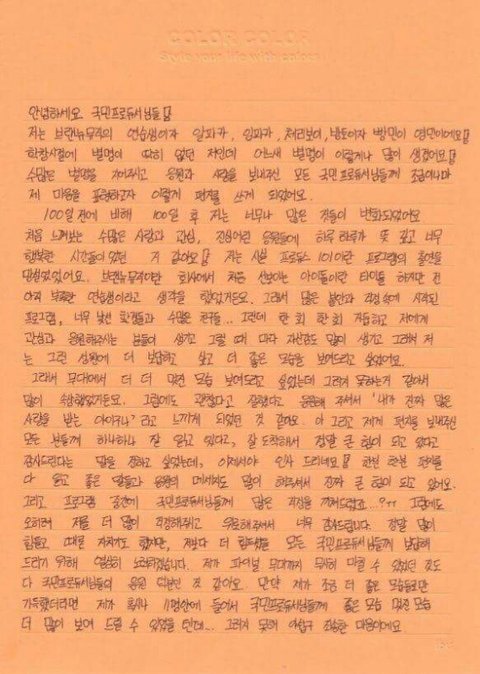 COLOR COLOR
Style your life with colors
안녕하세요 국민프로듀서님들
저는 브랜뉴뮤직의 연습생이자
학창시절에 별명이 딱히 없던 저인데 어느새 별명이 이렇게나 많이 생겼어요
수많은 별명을 지어주시고 응원과 사랑을 보내주신 모든 국민프로듀서님들께 조금이나마
제 마음을 표현하고자 이렇게 편지를 쓰게 되었어요.
100일 전에 비해 100일 후 저는 너무나 많은 것들이 변화되었어요
처음 느껴보는 수많은 사랑과 관심, 진심어린 응원들에 하루하루가 뜻 깊고 너무
행복한 시간들이었던 거 같아요 저는 사실 프로듀스 101이란 프로그램의 출연을
망설였었어요. 브랜뉴뮤직이란 회사에서 처음 선보이는 아이돌이란 타이틀 하지만 전
아직 부족한 연습생이라고 생각을 했었거든요. 그래서 많은 불안과 걱정 속에 시작된
프로그램, 너무 낯선 촬영들과 수많은 친구들.. 그런데 한 회 한 회 지날수록 저에게
관심과 응원해주시는 분들이 생기고 그럴 때 마다 자신감도 많이 생기고 그래서 저
는 그런 성원에 더 보답하고 싶고 더 좋은 모습을 보여드리고 싶었어요.
그래서 무대에서 더 더 멋진 모습 보여드리고 싶었는데 그러지 못하는거 같아서
많이 속상했었거든요. 그럼에도 괜찮다고 잘했다고 응원해 주셔서 '내가 진짜 많은
사랑을 받는 아이구나' 라고 느끼게 되었던 것 같아요. 아 그리고 제게 편지를 보내주신
모든 분들께 하나하나 잘 읽고 있다고, 잘 도착해서 정말 큰 힘이 되고 있다고
감사드린다는 말을 전하고 싶었는데, 이제서야 인사 드리네요 한분 한분 편지를
다 읽고 좋은 말들과 응원의 메세지도 많이 해주셔서 진짜 큰 힘이 되고 있어요.
그리고 프로그램 중간에 국민프로듀서님들께 많은 걱정을 끼쳐드렸죠.. 그럼에도
오히려 저를 더 많이 걱정해주시고 응원해주셔서 너무 감사드립니다. 정말 많이
힘들고 때론 지치기도 했지만, 저보다 더 힘드셨을 모든 국민프로듀서님들께 보답해
드리기 위해 열심히 노력하겠습니다. 제가 파이널 무대까지 무사히 마칠 수 있었던 것도
다 국민프로듀서님들의 응원 덕분인 것 같아요. 만약 제가 조금 더 좋은 모습들로만
가득했더라면 제가 혹시나 11명안에 들어서 국민프로듀서님들께 좋은 모습 멋진 모습
더 많이 보여 드릴 수 있었을 텐데... 그러지 못해 아쉽고 죄송한 마음이에요